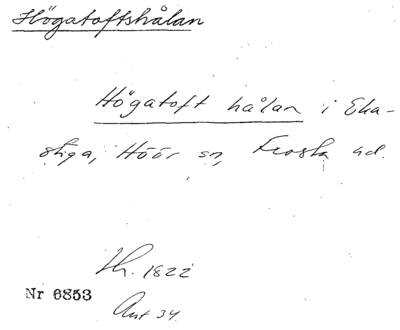 Högatoftshålan
Högatoft hålan i Eka-
stiga, Höör sn, Frosta hd.
Lh. 1822
Nr 6853
Ant 34.